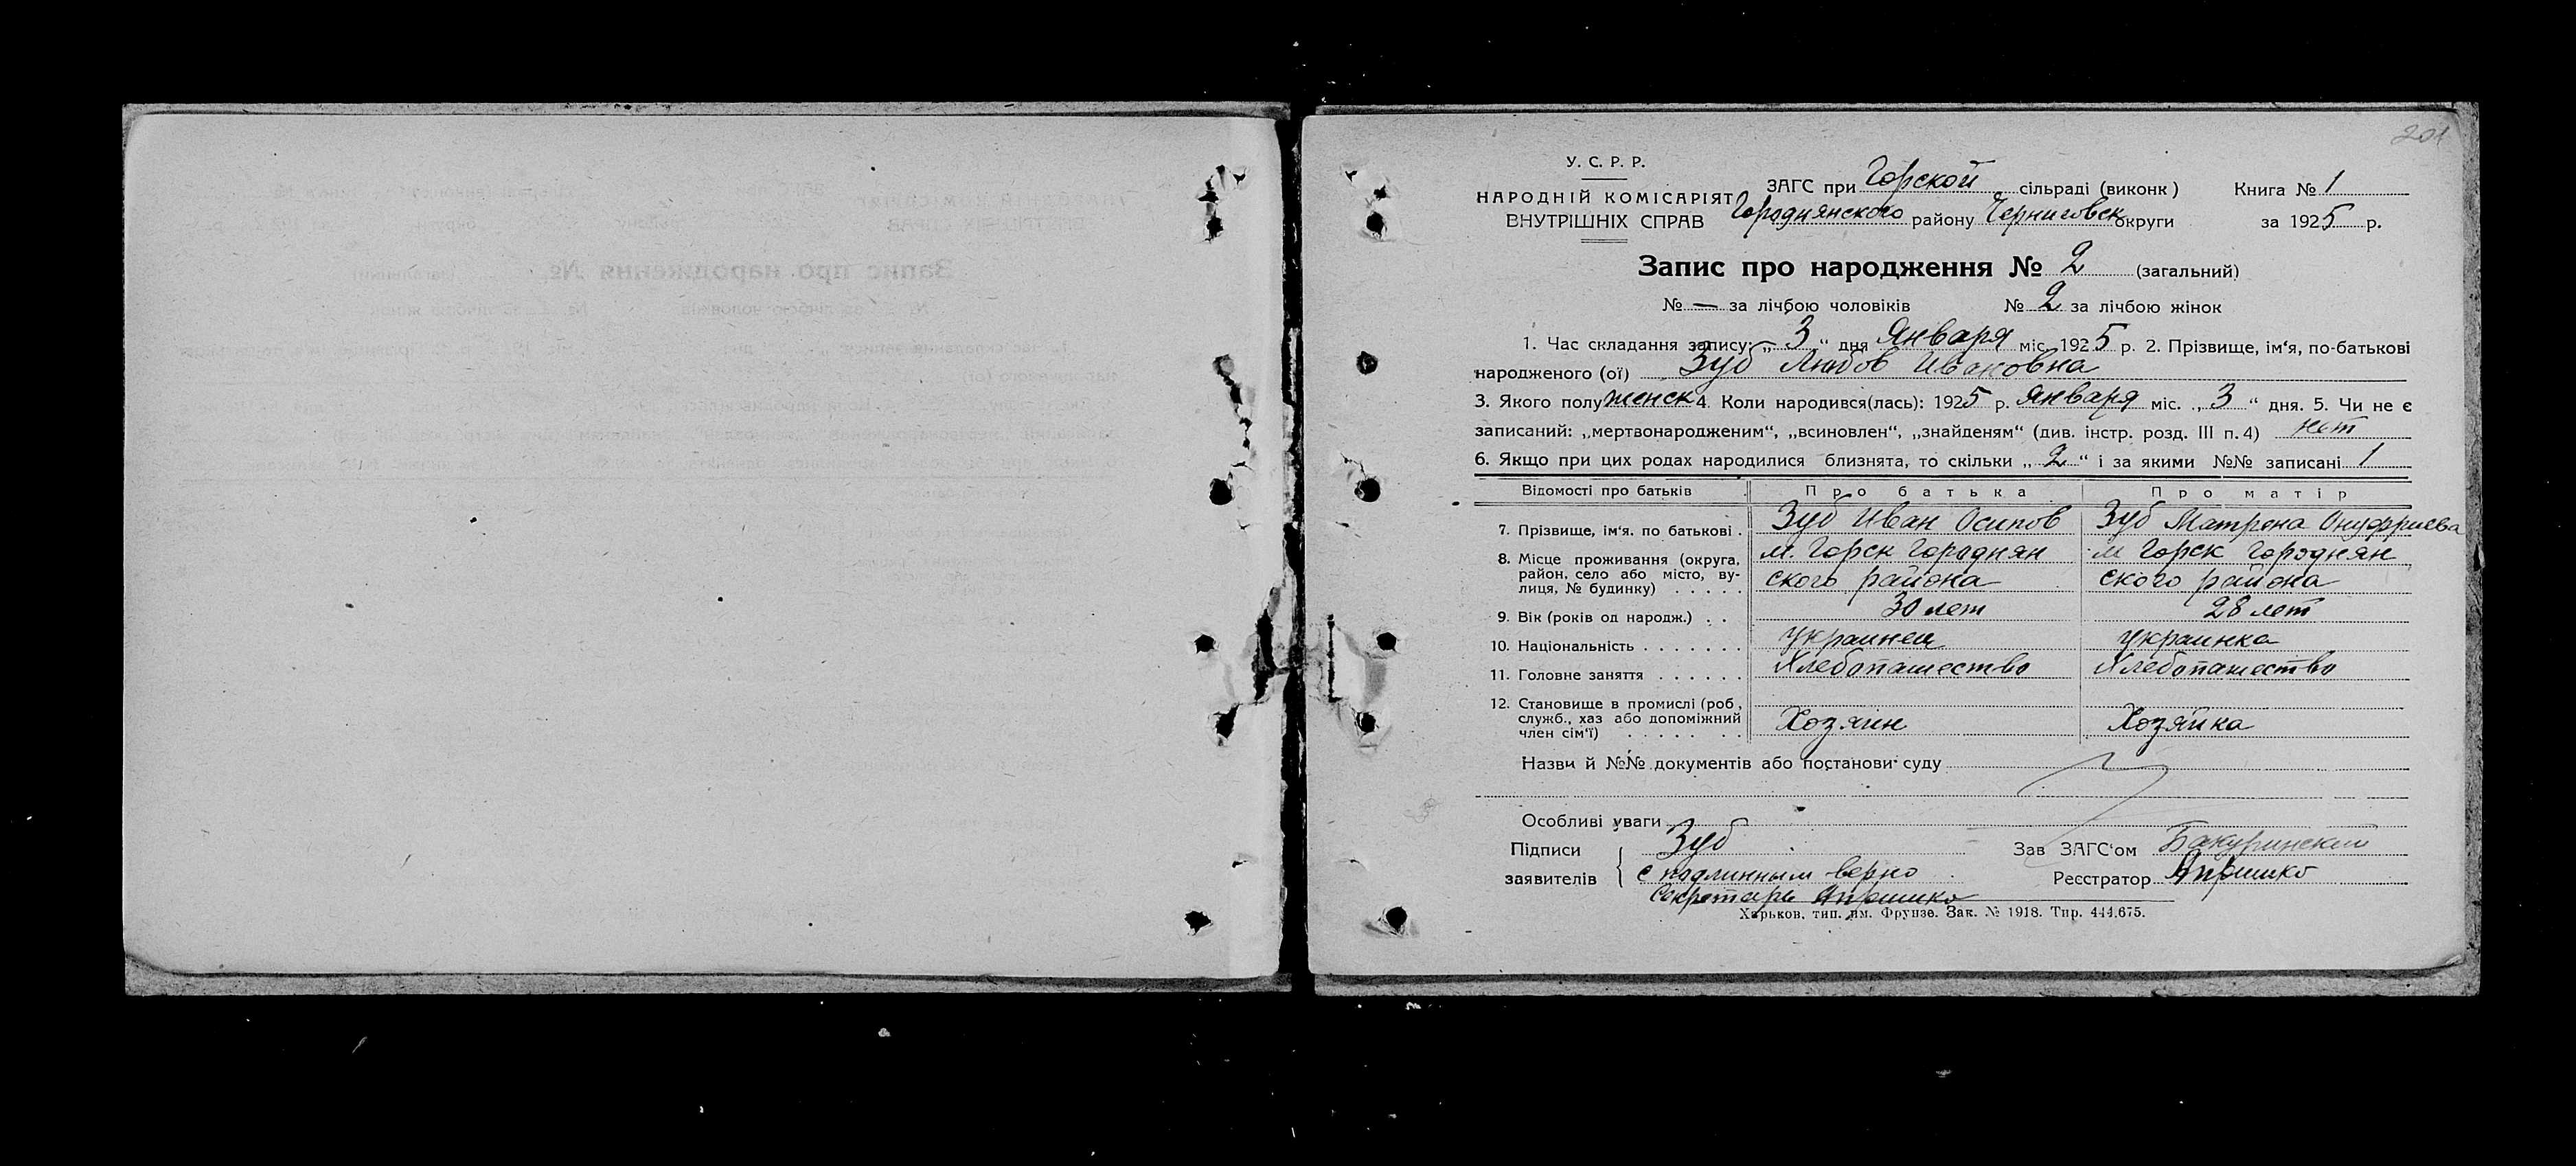 201
У. С. Р. Р.
НАРОДНІЙ КОМІСАРІЯТ
ВНУТРІШНІХ СПРАВ
ЗАГС при Горской сільраді (виконк) Книга № 1
Городнянского району Черниговск округи за 1925 р.
Запис про народження № 2 (загальний)
№ — за лічбою чоловіків № 2 за лічбою жінок
1. Час складання запису: „ 3 “ дня Января міс. 1925 р. 2. Прізвище, ім‘я, по-батькові
народженого (ої) Зуб Любов Ивановна
3. Якого полу женск 4. Коли народився(лась): 1925 р. Января міс. „ 3 “ дня. 5. Чи не є
записаний: „мертвонародженим“, „всиновлен“, „знайденям“ (див. інстр. розд. III п. 4) нет
6. Якщо при цих родах народилися близнята, то скільки „ 2 “ і за якими №№ записані 1
Відомості про батьків Про батька Про матір
7. Прізвище, ім‘я. по батькові . Зуб Иван Осипов Зуб Матрена Онуфриева
8. Місце проживання (округа, м. Горск Городнян м Горск Городнян
район, село або місто, ву-
лиця, № будинку) . . . . . ского района ского района
9. Вік (років од народж.) . . 30 лет 28 лет
10. Національність . . . . . . . украинец украинка
11. Головне заняття . . . . . . Хлебопашество Хлебопашество
12. Становище в промислі (роб,
служб., хаз або допоміжний Хозяин Хозяйка
член сім‘ї) . . . . . . . .
Назви й №№ документів або постанови суду
Особливі уваги
Підписи Зуб Зав ЗАГС‘ом Бакуринский
заявителів С подлинным верно Реєстратор Апрошко
Секретарь Апрошко
Харьков, тип. им. Фрунзе. Зак. № 1918. Тир. 444.675.